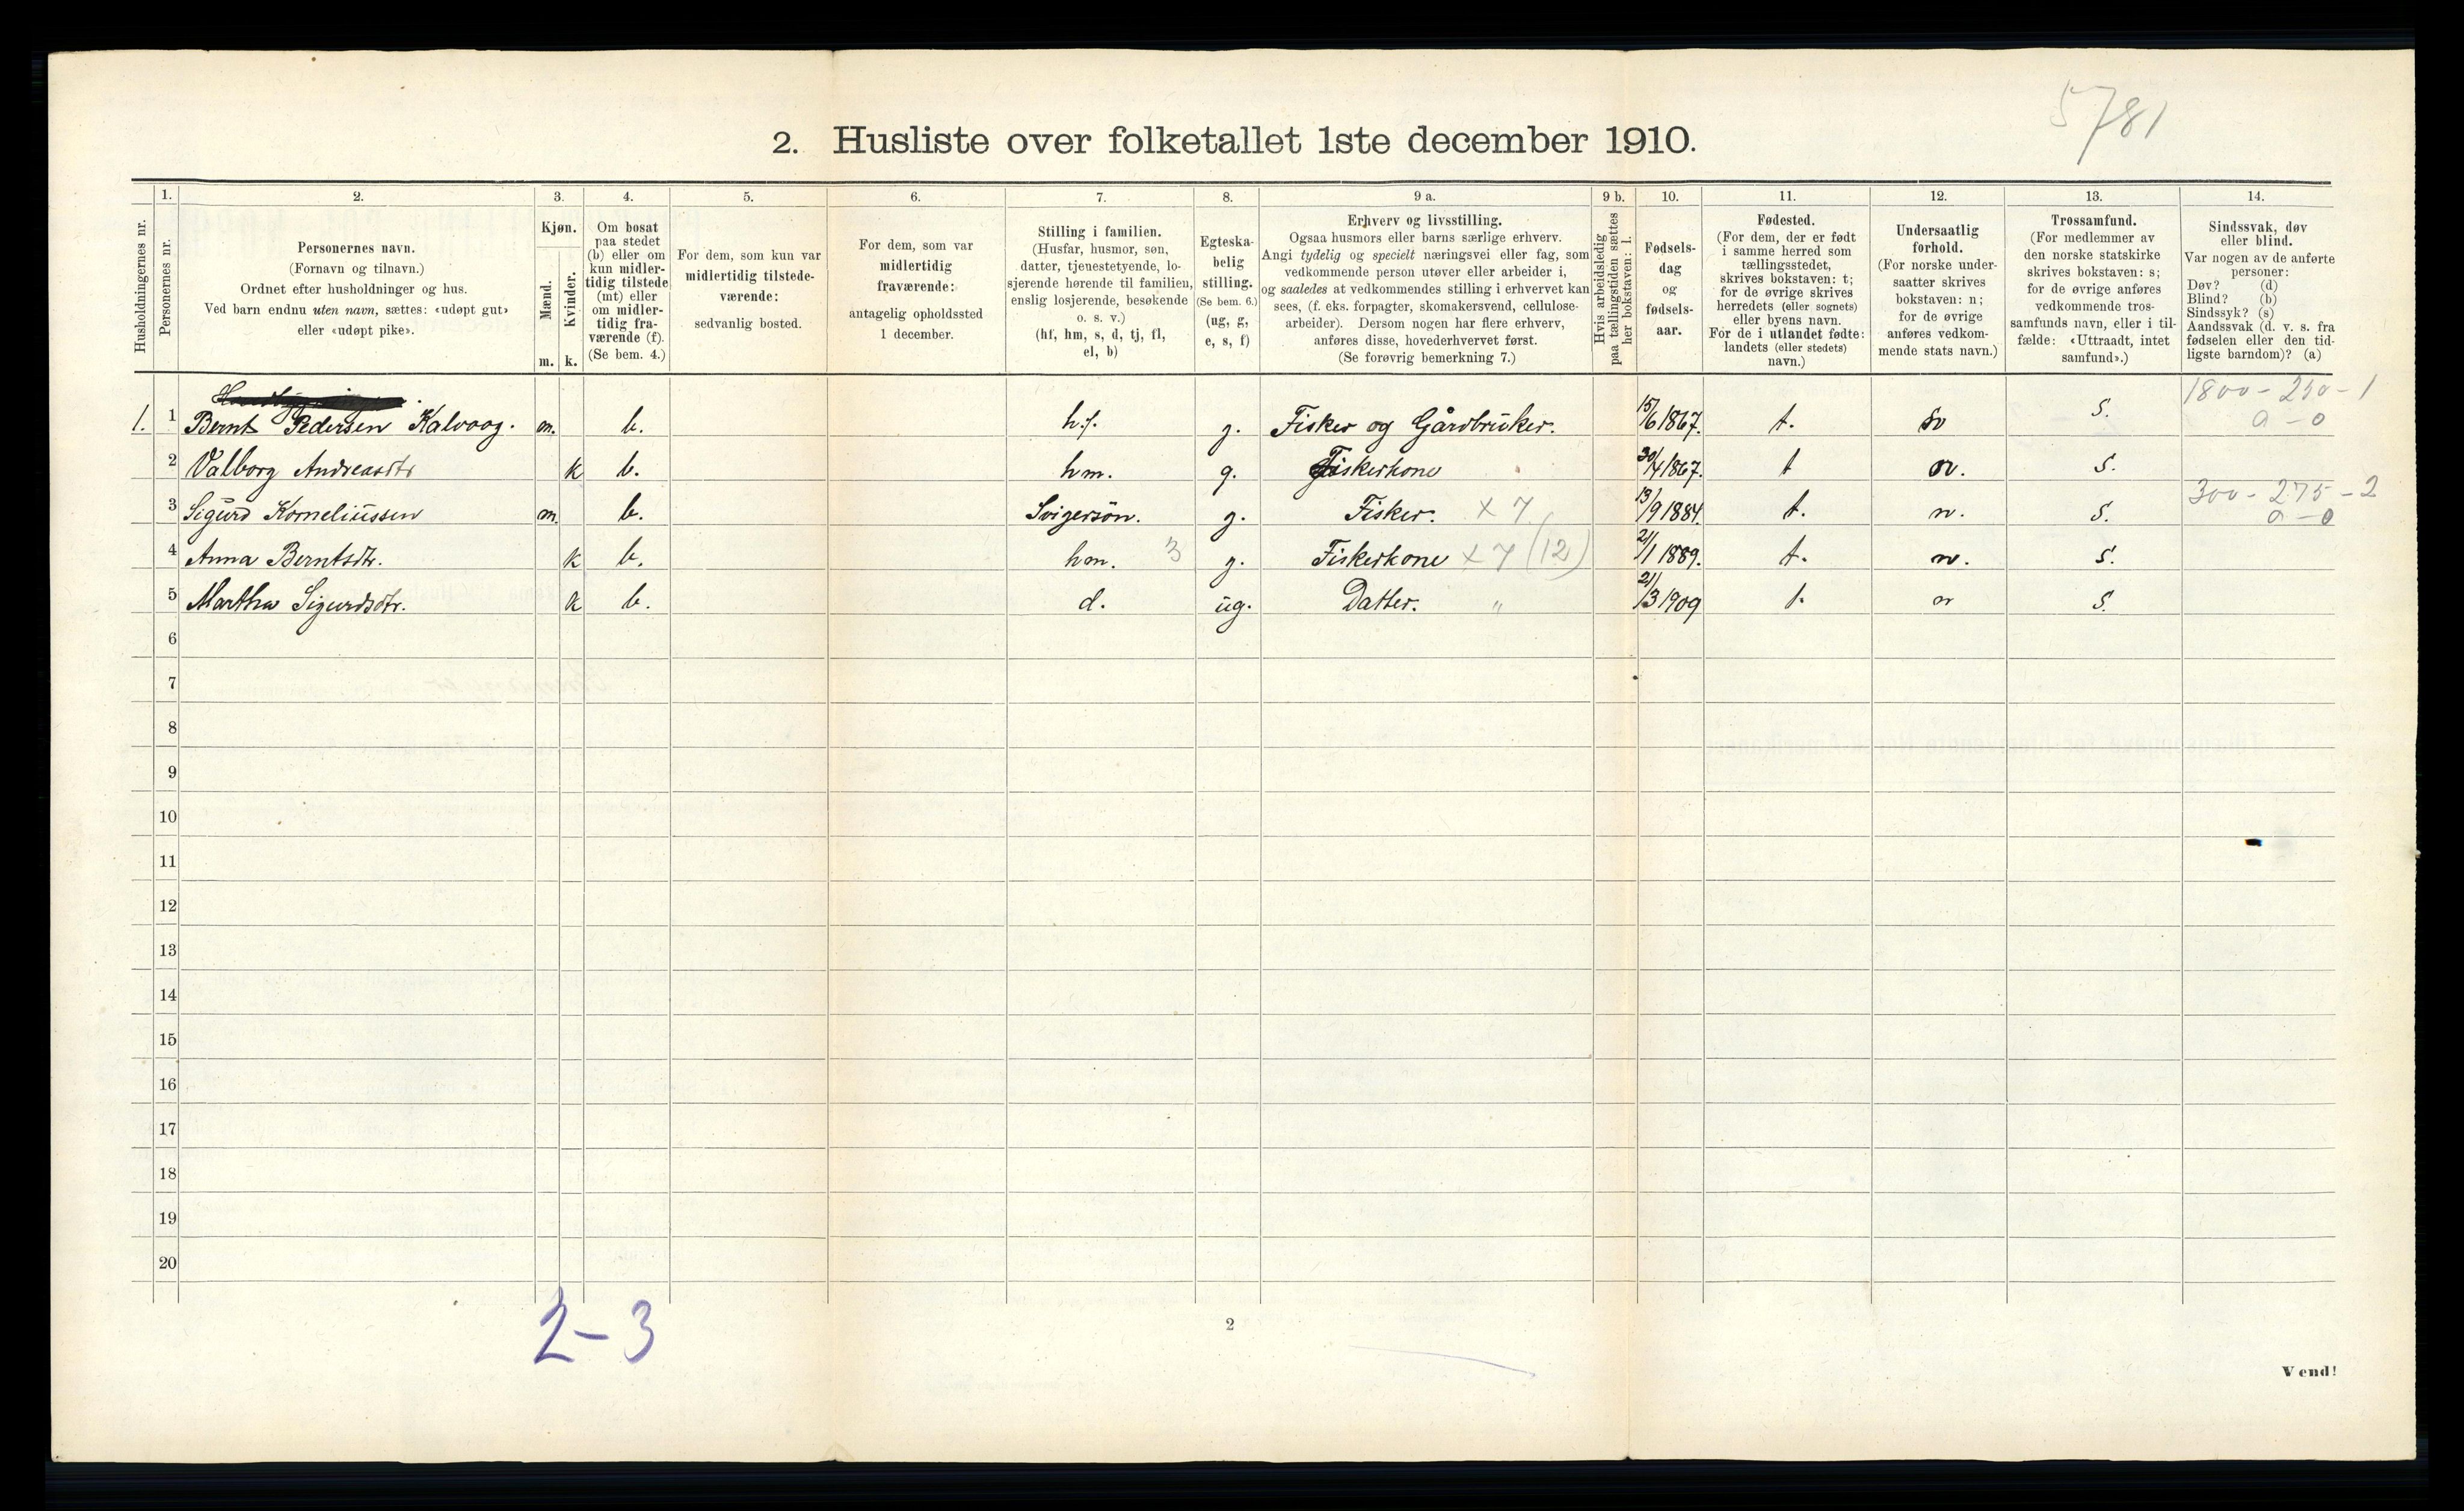 5781
2. Husliste over folketallet 1ste december 1910.
Husholdningernes nr.
1. Personernes nr.
2. Personernes navn.
(Fornavn og tilnavn.)
Ordnet efter husholdninger og hus.
Ved barn endnu uten navn, sættes: «udøpt gut»
eller «udøpt pike».
3. Kjøn.
Mænd. Kvinder.
m. k.
4. Om bosat
paa stedet
(b) eller om
kun midler-
tidig tilstede
(mt) eller
om midler-
tidig fra-
værende (f).
(Se bem. 4.)
5. For dem, som kun var
midlertidig tilstede-
værende:
sedvanlig bosted.
6. For dem, som var
midlertidig
fraværende:
antagelig opholdssted
1 december.
7. Stilling i familien.
(Husfar, husmor, søn,
datter, tjenestetyende, lo-
sjerende hørende til familien,
enslig losjerende, besøkende
o. s. v.)
(hf, hm, s, d, tj, fl,
el, b)
8. Egteska-
belig
stilling.
(Se bem. 6.)
(ug, g,
e, s, f)
9 a. Erhverv og livsstilling.
Ogsaa husmors eller barns særlige erhverv.
Angi tydelig og specielt næringsvei eller fag, som
vedkommende person utøver eller arbeider i,
og saaledes at vedkommendes stilling i erhvervet kan
sees, (f. eks. forpagter, skomakersvend, cellulose-
arbeider). Dersom nogen har flere erhverv,
anføres disse, hovederhvervet først.
(Se forøvrig bemerkning 7.)
9 b. Hvis arbeidsledig
paa tællingstiden sættes
her bokstaven: l.
10. Fødsels-
dag
og
fødsels-
aar.
11. Fødested.
(For dem, der er født
i samme herred som
tællingsstedet,
skrives bokstaven: t;
for de øvrige skrives
herredets (eller sognets)
eller byens navn.
For de i utlandet fødte:
landets (eller stedets)
navn.)
12. Undersaatlig
forhold.
(For norske under-
saatter skrives
bokstaven: n;
for de øvrige
anføres vedkom-
mende stats navn.)
13. Trossamfund.
(For medlemmer av
den norske statskirke
skrives bokstaven: s;
for de øvrige anføres
vedkommende tros-
samfunds navn, eller i til-
fælde: «Uttraadt, intet
samfund».)
14. Sindssvak, døv
eller blind.
Var nogen av de anførte
personer:
Døv? (d)
Blind? (b)
Sindssyk? (s)
Aandssvak (d. v. s. fra
fødselen eller den tid-
ligste barndom)? (a)
1800 - 250 - 1
1. 1 Bernt Pedersen Kalvaag. m. b. h.f. g. Fisker og Gårdbruker. 15/6 1867. t. S. a - 0
2 Valborg Andreasdtr k b. hm. g. Fiskerkone 30/4 1867. t n. S.
300 - 275 - 2
3 Sigurd Korneliussen m. b. Svigersøn. g. Fisker. x 7 13/9 1884. t. n. S. a - 0
4 Anna Berntsdtr. k b. hm. 3 g. Fiskerkone x 7 (12) 21/1 1889. t. n. S.
5 Martha Sigurdsdtr. k b. d. ug. Datter. " 21/3 1909 t. n S.
6
7
8
9
10
11
12
13
14
15
16
17
18
19
20
2 - 3
2
Vend!